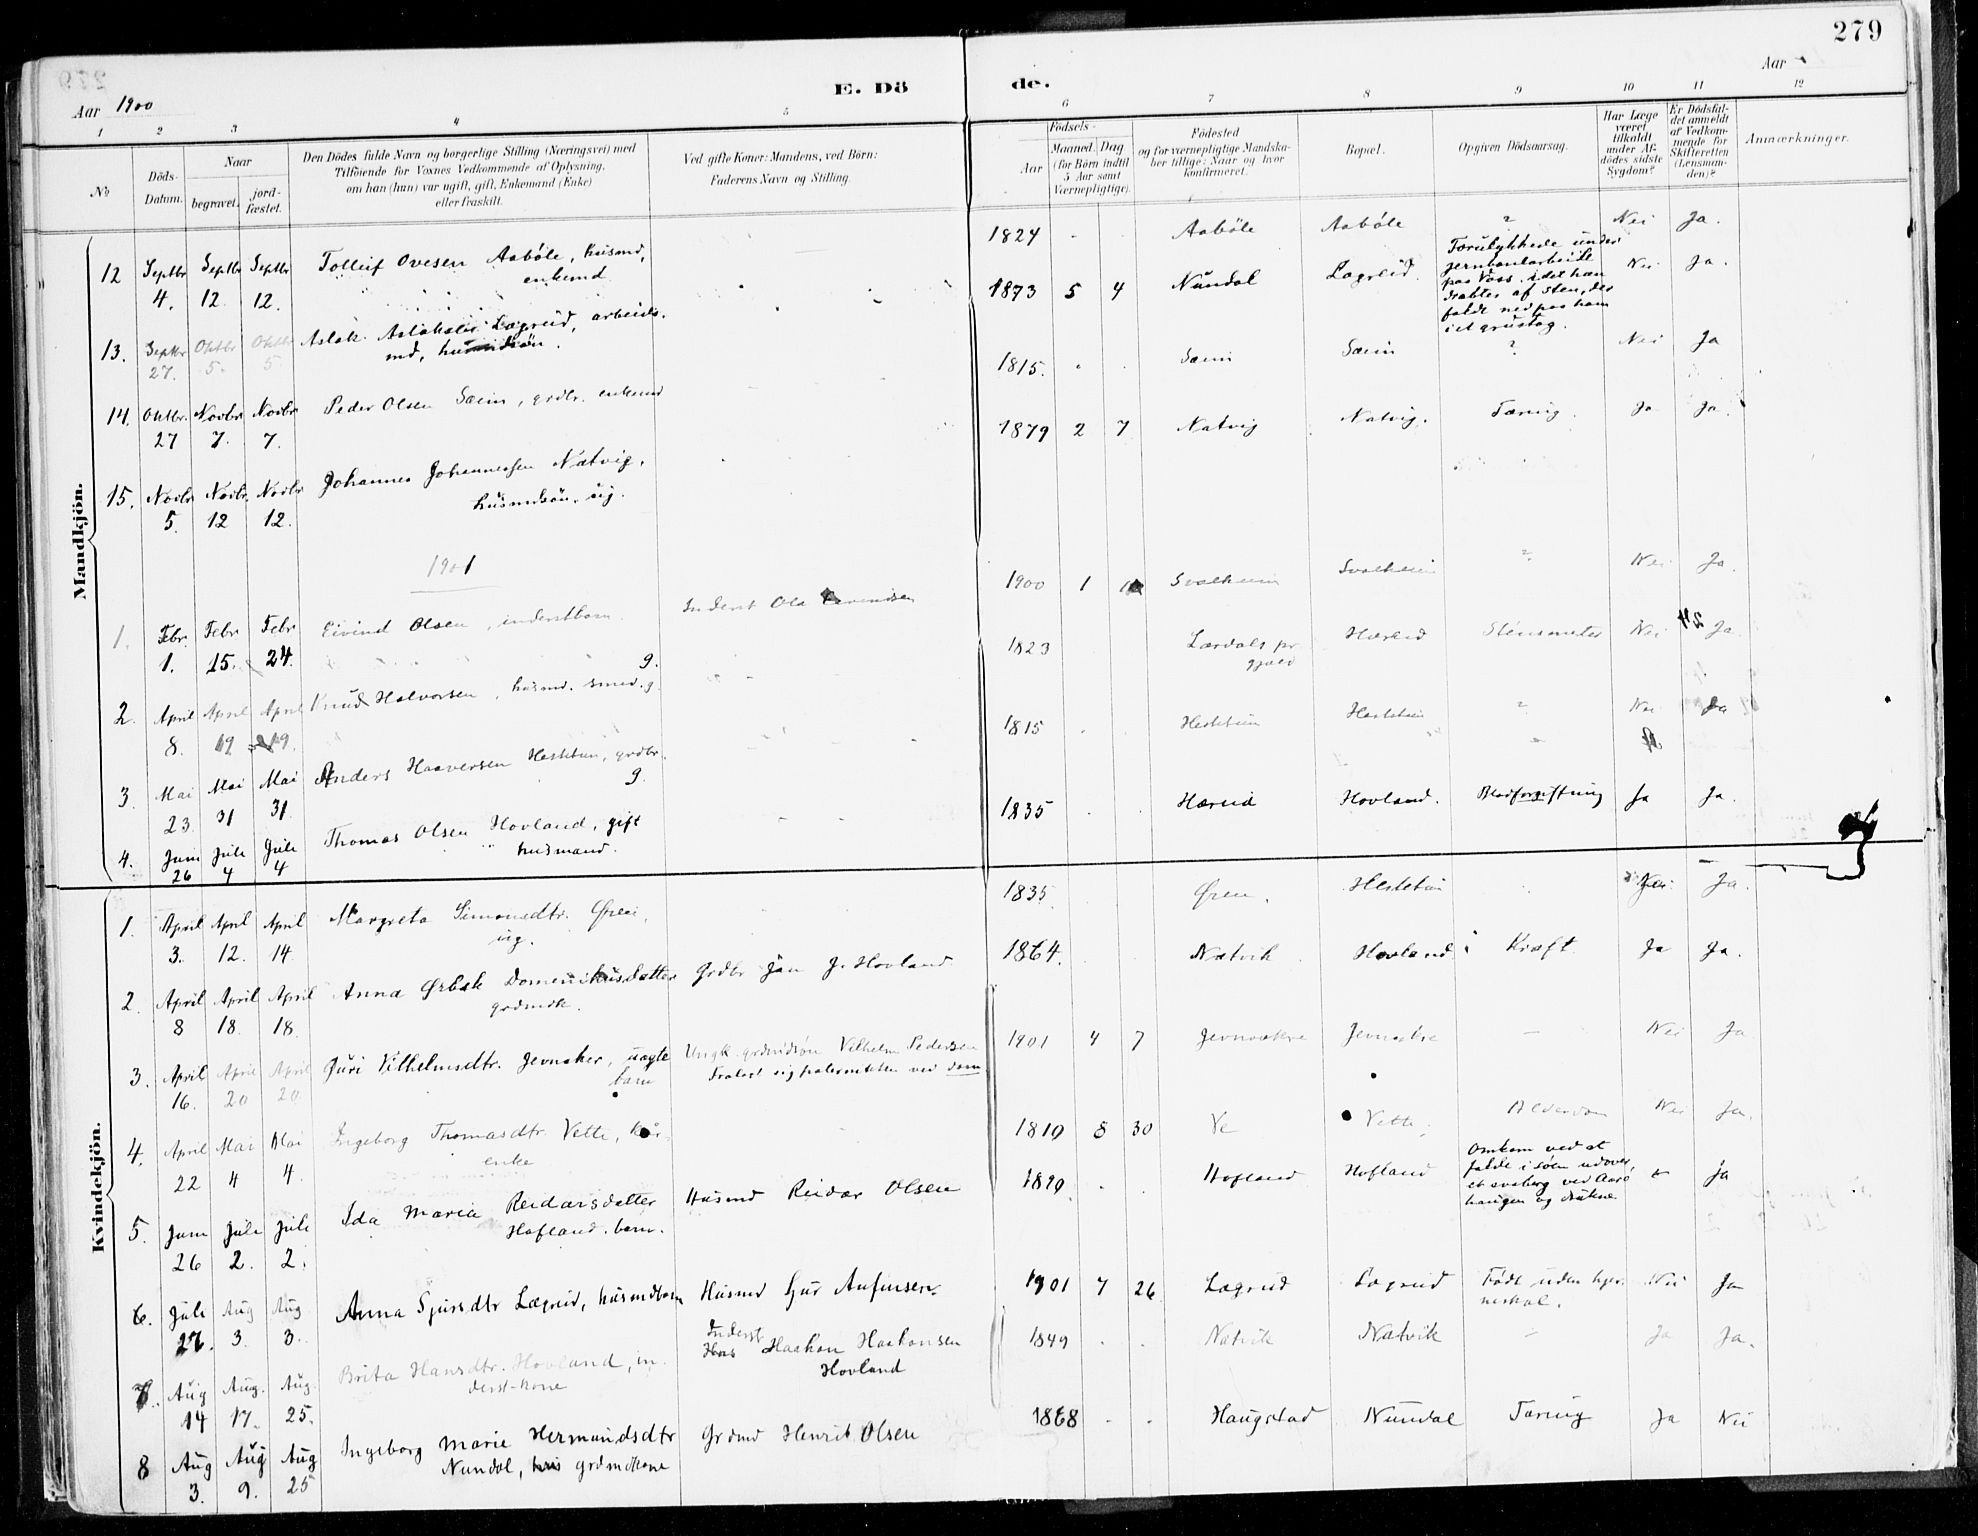 279
Aar 1900
E. Dö
de.
Aar
1 2 3 4 5 6 7 8 9 10 11 12
No
Döds-
Datum.
Naar
begravet.
jord-
fæstet.
Den Dödes fulde Navn og borgerlige Stilling (Næringsvei) med
Tilföiende for Voxnes Vedkommende af Oplysning,
om han (hun) var ugift, gift, Enkemand (Enke)
eller fraskilt.
Ved gifte Koner: Mandens, ved Börn:
Faderens Navn og Stilling.
Födsels-
Aar
Maaned. Dag
(for Börn indtil
5 Aar samt
Værnepligtige).
Födested
og for værnepligtige Mandska-
ber tillige: Naar og hvor
konfirmeret.
Bopæl.
Opgiven Dödsaarsag.
Har Læge
været
tilkaldt
under Af-
dödes sidste
Sygdom?
Er Dödsfal-
det anmeldt
af Vedkom-
mende for
Skifteretten
(Lensman-
den)?
Anmærkninger.
Mandkjön.
12 Septbr 4. Septbr 12. Septbr 12. Tolleif Ovesen Aaböle, husmd,
enkemd
1824 Aaböle Aaböle ? Nei Ja.
13. Septbr 27. Oktbr 5. Oktbr 5. Aslak Aslaksen Lægreid, arbeids-
md,
1873 5 4 Nundal Lægreid. Forulykkede under
jernbanearbeide
paa Voss, idet han
dræbtes af sten, der
faldt ned paa ham
i et grustag.
Nei Ja.
14. Oktbr. 27 Novbr 7. Novbr 7. Peder Olsen Sæim, grdbr. enkemd
1815. Sæim Sæim ? Nei Ja
15. Novbr 5. Novbr. 12 Novbr 12. Johannes Johannessen Natvig,
husmdsön, ug.
1879 2 7 Natvig Natvig. Tæring. Ja Ja.
1901
1. Febr. 1. Febr 15. Febr 24. Eivind Olsen, inderstbarn. Inderst Ola
1900 1 Svalheim Svalheim ? Nei Ja.
2. April 8. April 19 April 19. Knud Halvorsen, husmd. smed. g.
1823 Lærdals pr
gjæld
Hæreid Nei Ja.
3. Mai 23. Mai 31 Mai 31. Anders Haaversen Hestetun, grdbr.
g.
1815 Hestetun Hestetun ? Nei Ja
4. Juni 26 Juli 4 Juli 4 Thomas Olsen Hovland, gift
husmand.
1835 Hæreid Hovland. Blodforgiftning Ja Ja.
Kvindekjön.
1. April 3. April 12. April 14. Margreta Simonsdtr. Øren,
ug.
1835. Øren. Hestetun Nei. Ja.
2. April 8 April 18. April 18. Anna Ørbæk Domenikusdatter
grdmdk.
Grdbr Jan J. Hovland
1864. Natvik Hovland Kræft Ja Ja.
3. April 16. April 20 April 20 Guri Vilhelmsdtr. Jevnaker, uægte
barn
Ungk. grdmdsön Vilhelm Pedersen
Fralagt sig paterniteten ved dom
1901 4 7 Jevnakre Jevnakre – Nei Ja
4. April 22 Mai 4 Mai 4. Ingeborg Thomasdtr. Vetti, kår-
enke
1819 8 30 Ve Vetti. Alderdom Nei Ja.
5. Juni 26 Juli 2. Juli 2. Ida Maria Reidarsdatter
Hofland. barn.
Husmd Reidar Olsen
Hofland Hofland Omkom ved at
falde i søen udover
et svaberg ved Aarö-
haugen og drukne
Ja
6. Juli 27. Aug 3. Aug. 3. Anna Sjursdtr Lægreid, husmdbarn Husmd Sjur Anfinsen.
1901 7 26 Lægreid Lægreid Født uden hjer-
neskal.
Nei Ja
7. Aug 14 Aug. 17. Aug. 25. Brita Hansdtr. Hovland, in-
derst-kone
Inderst
Haakon Haakonsen
Hovland
1849 Natvik Natvik – Ja Ja.
8 Aug 3. Aug 9. Aug 25 Ingeborg Marie Hermundsdtr
Nundal, grdmdkone
Grdmd Henrik Olsen
1868 Haugstad Nundal Tæring Ja Nei